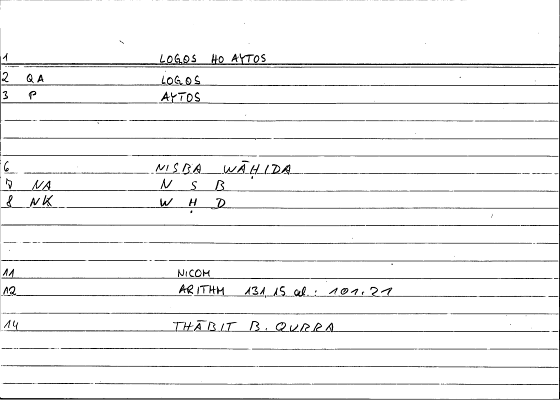 1 LOGOS HO AYTOS
2 QA LOGOS
3 P AYTOS
6 NISBA WĀḤIDA
7 NA N S B
8 NK W Ḥ D
11 NICOM
12 ARITHM 131,15 al.: 101.21
14 THĀBIT B. QURRA